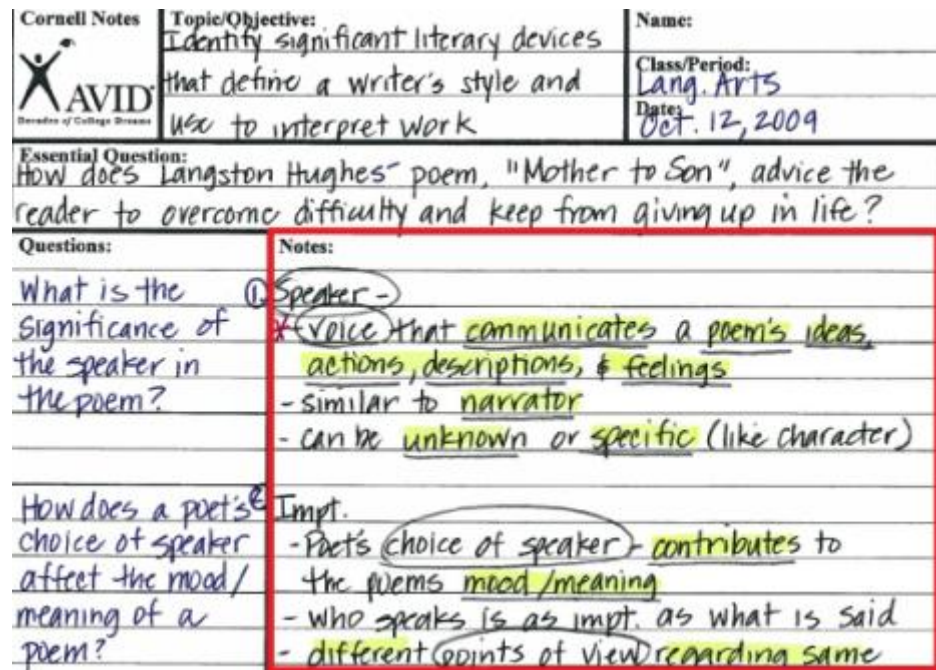 Cornell Notes
AVID
Decades of College Dreams
Topic/Objective:
Identify significant literary devices
that define a writer's style and
use to interpret work
Name:
Class/Period:
Lang. Arts
Date:
Oct. 12, 2009
Essential Question:
How does Langston Hughes' poem, "Mother to Son", advice the
reader to overcome difficulty and keep from giving up in life?
Questions:
What is the
significance of
the speaker in
the poem?
How does a poet's
choice of speaker
affect the mood/
meaning of a
poem?
Notes:
1. Speaker -
* - voice that communicates a poem's ideas,
actions, descriptions, & feelings
- similar to narrator
- can be unknown or specific (like character)
2 Impt.
- Poet's choice of speaker - contributes to
the poems mood/meaning
- who speaks is as impt. as what is said
- different points of view regarding same